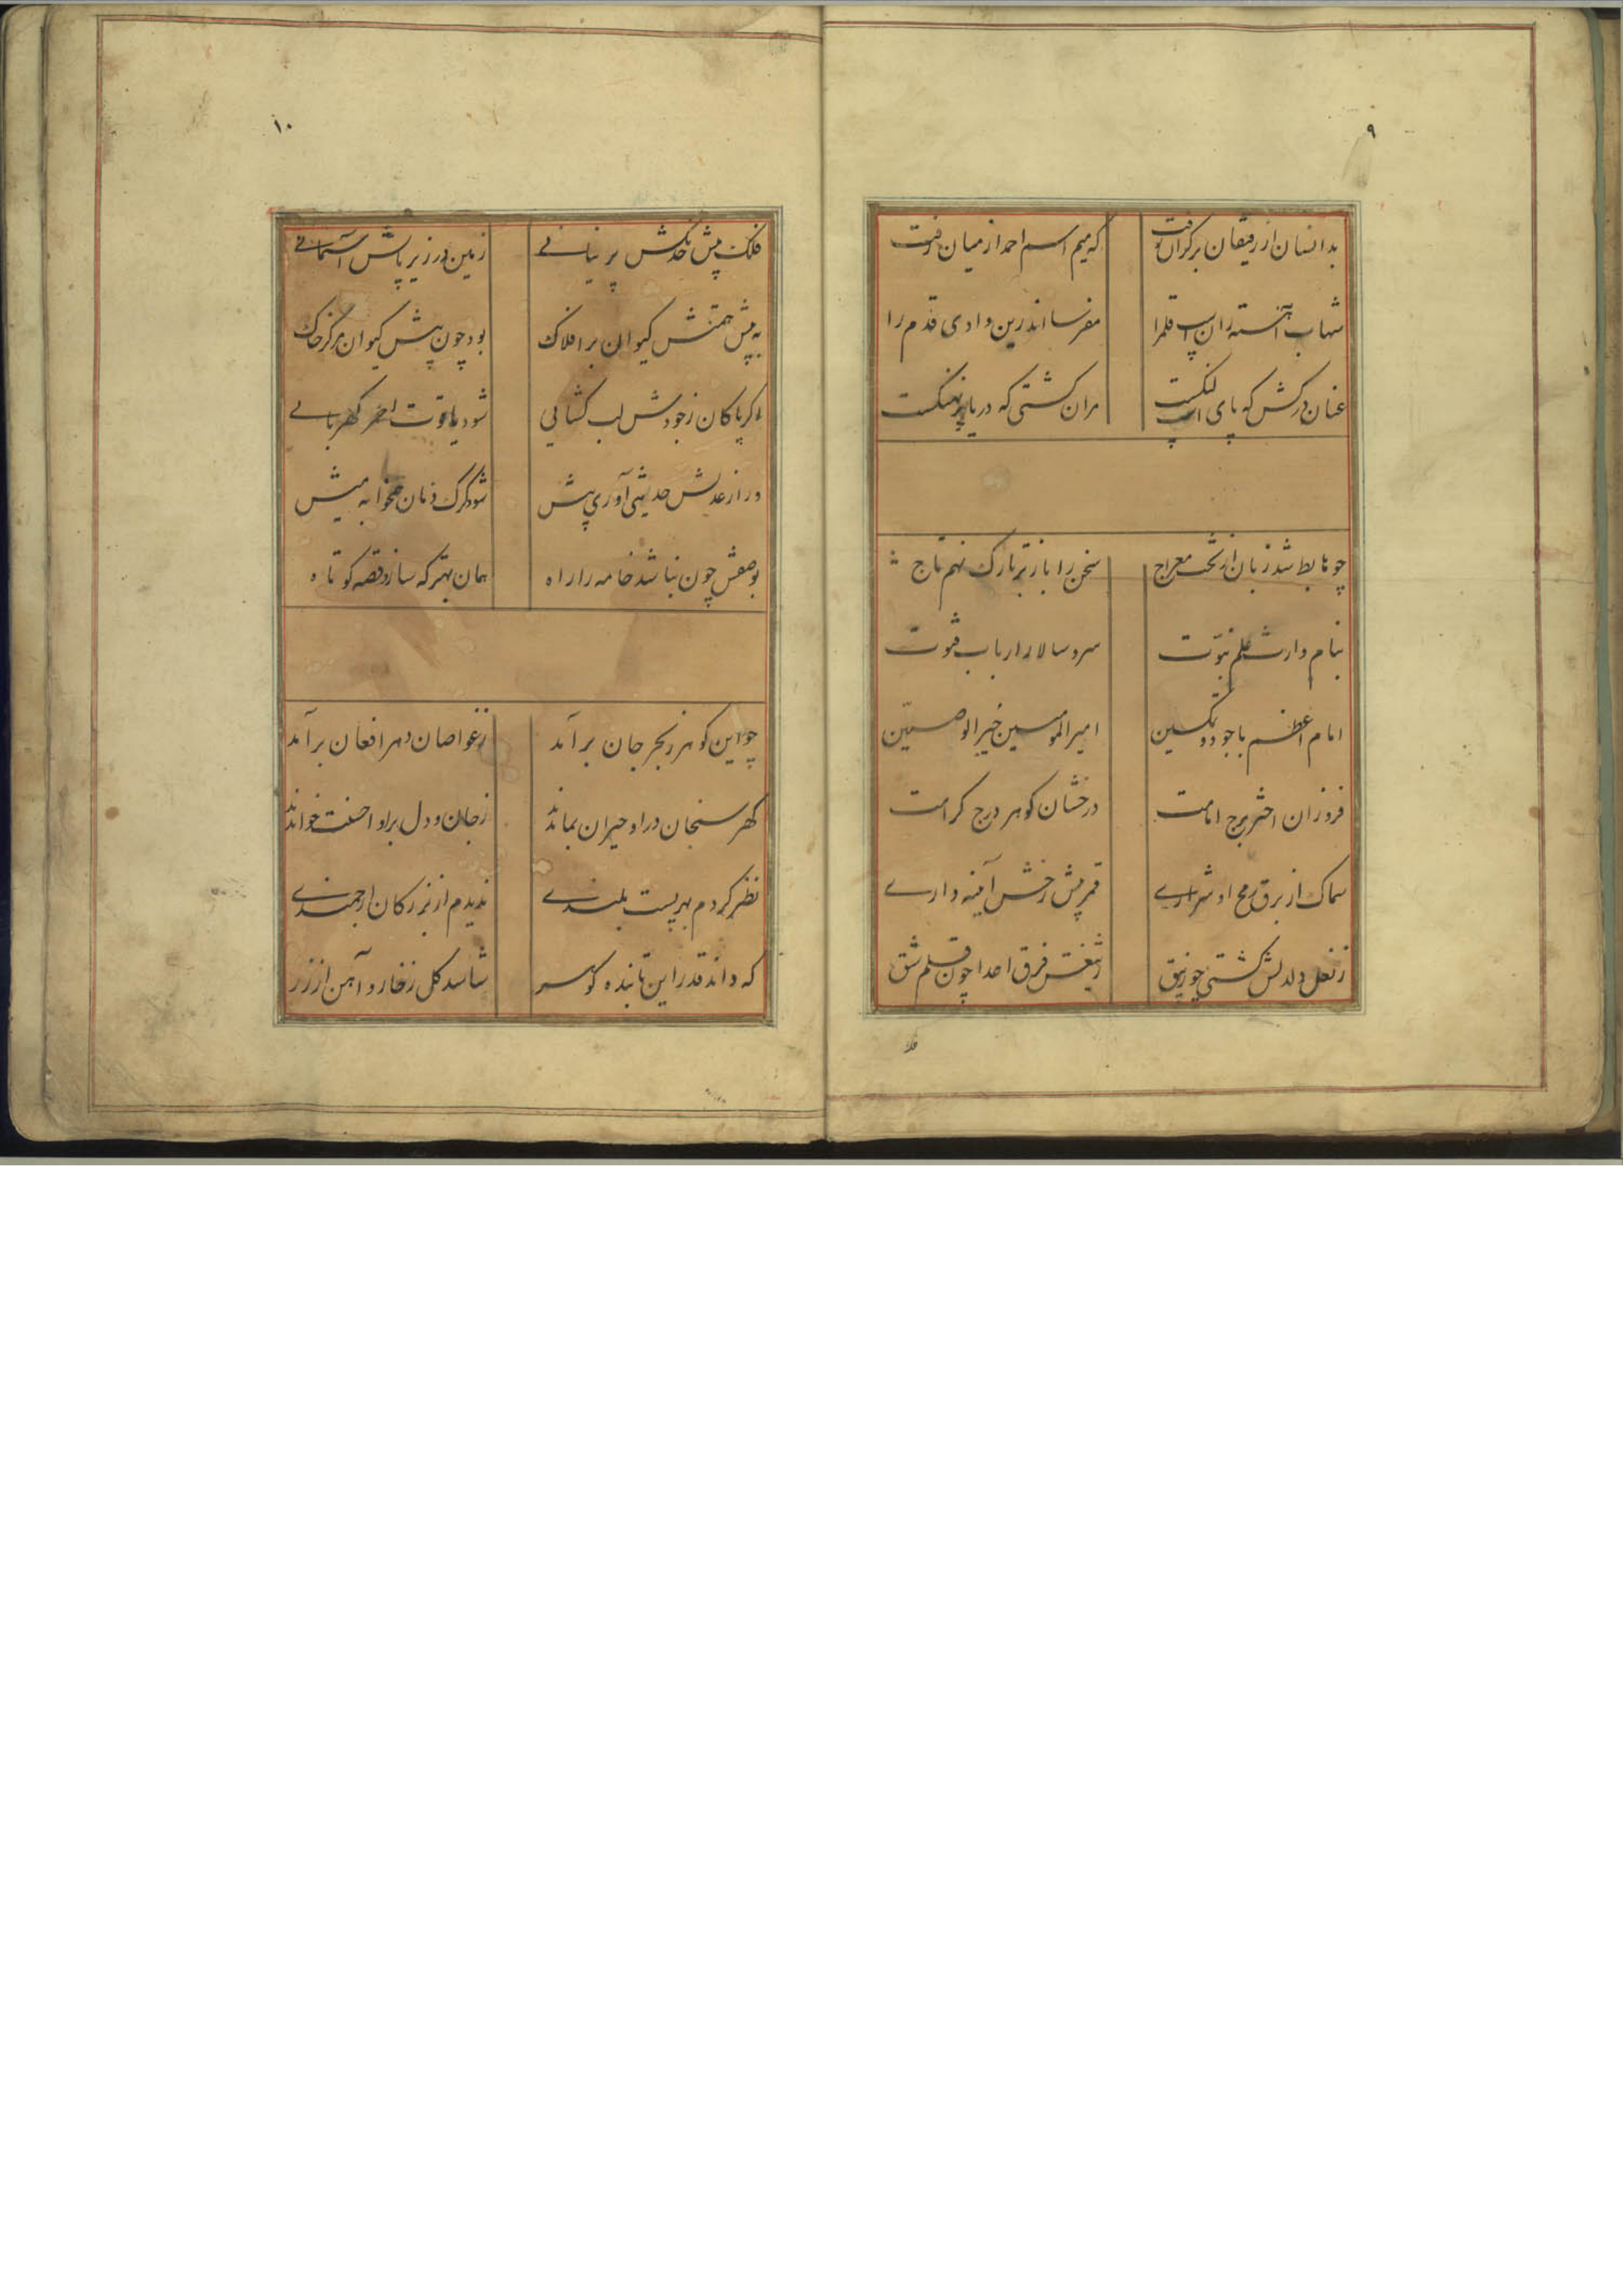 ۹
بدانسان از رفیقان برکران رفت که میم اسم احمد از میان رفت
شهاب آهسته ران اسپ قلم را مفرسا اندرین وادی قدم را
عنان درکش که پای اسپ لنگست مران کشتی که دریا پر نهنگست
چو هابط شد زبان از تخت معراج سخن را باز بر تارک نهم تاج
بنام وارث علم نبوّت سر و سالار ارباب فتوت
امام اعظم با جود و تمکین امیر المومنین خیر الوصیّین
فروزان اختر برج امامت درخشان کوهر درج کرامت
سماک از برق رمح او شراری قمر پیش رخش آینه داری
ز نعل دلدلش کشتی چو زیبق ز تیغش فرق اعدا چون قلم شق
فلک
۱۰
فلک پیش خدنکش پرنیانی زمین در زیر پایش آسمانی
به پیش همتش کیوان بر افلاک بود چون پیش کیوان مرکز خاک
اکر با کان ز جودش لب کشایی شود یاقوت احمر کهربایی
ور از عدلش حدیثی آوری پیش شود کرک دمان همخوابه میش
بوصفش چون نباشد خامه را راه همان بهتر که سازد قصه کوتاه
چو این کوهر ز بحر جان برآمد ز غواصان دهر افغان برآمد
کهر سنجان در او حیران بماندند ز جان و دل بر او احسنت خواندند
نظر کردم بهر پست بلندی ندیدم از بزرکان ارجمندی
که داند قدر این تابنده کوهر شناسد کل ز خار و آهن از زر